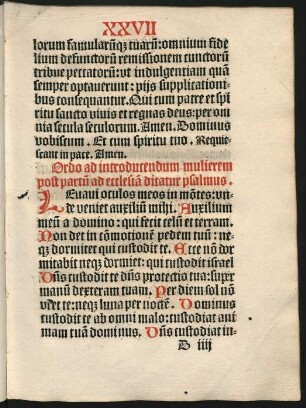 XXVII
lorum famularūqꝫ tuarū: omnium fide
lium defunctorū remissionem cunctorū
tribue peccatorū: vt indulgentiam quā
semper optauerunt: pijs supplicationi
bus consequantur. Qui cum patre et spi
ritu sancto viuis et regnas deus: per om
nia secula seculorum. Amen. Dominus
vobiscum. Et cum spiritu tuo. Requie
scant in pace. Amen.
Ordo ad introducendum mulierem
post partū ad ecclesiā dicatur psalmus.
LEuaui oculos meos in mōtes: vn
de veniet auxiliū mihi. Auxilium
meū a domino: qui fecit celū et terram.
Non det in cōmotionē pedem tuū: ne
qꝫ dormitet qui custodit te. Ecce nō dor
mitabit neqꝫ dormiet: qui custodit israel
Dn̄s custodit te dn̄s protectio tua: super
manū dexteram tuam. Per diem sol nō
vret te: neqꝫ luna per noctē. Dominus
custodit te ab omni malo: custodiat ani
mam tuā dominus. Dn̄s custodiat in-
D iiij